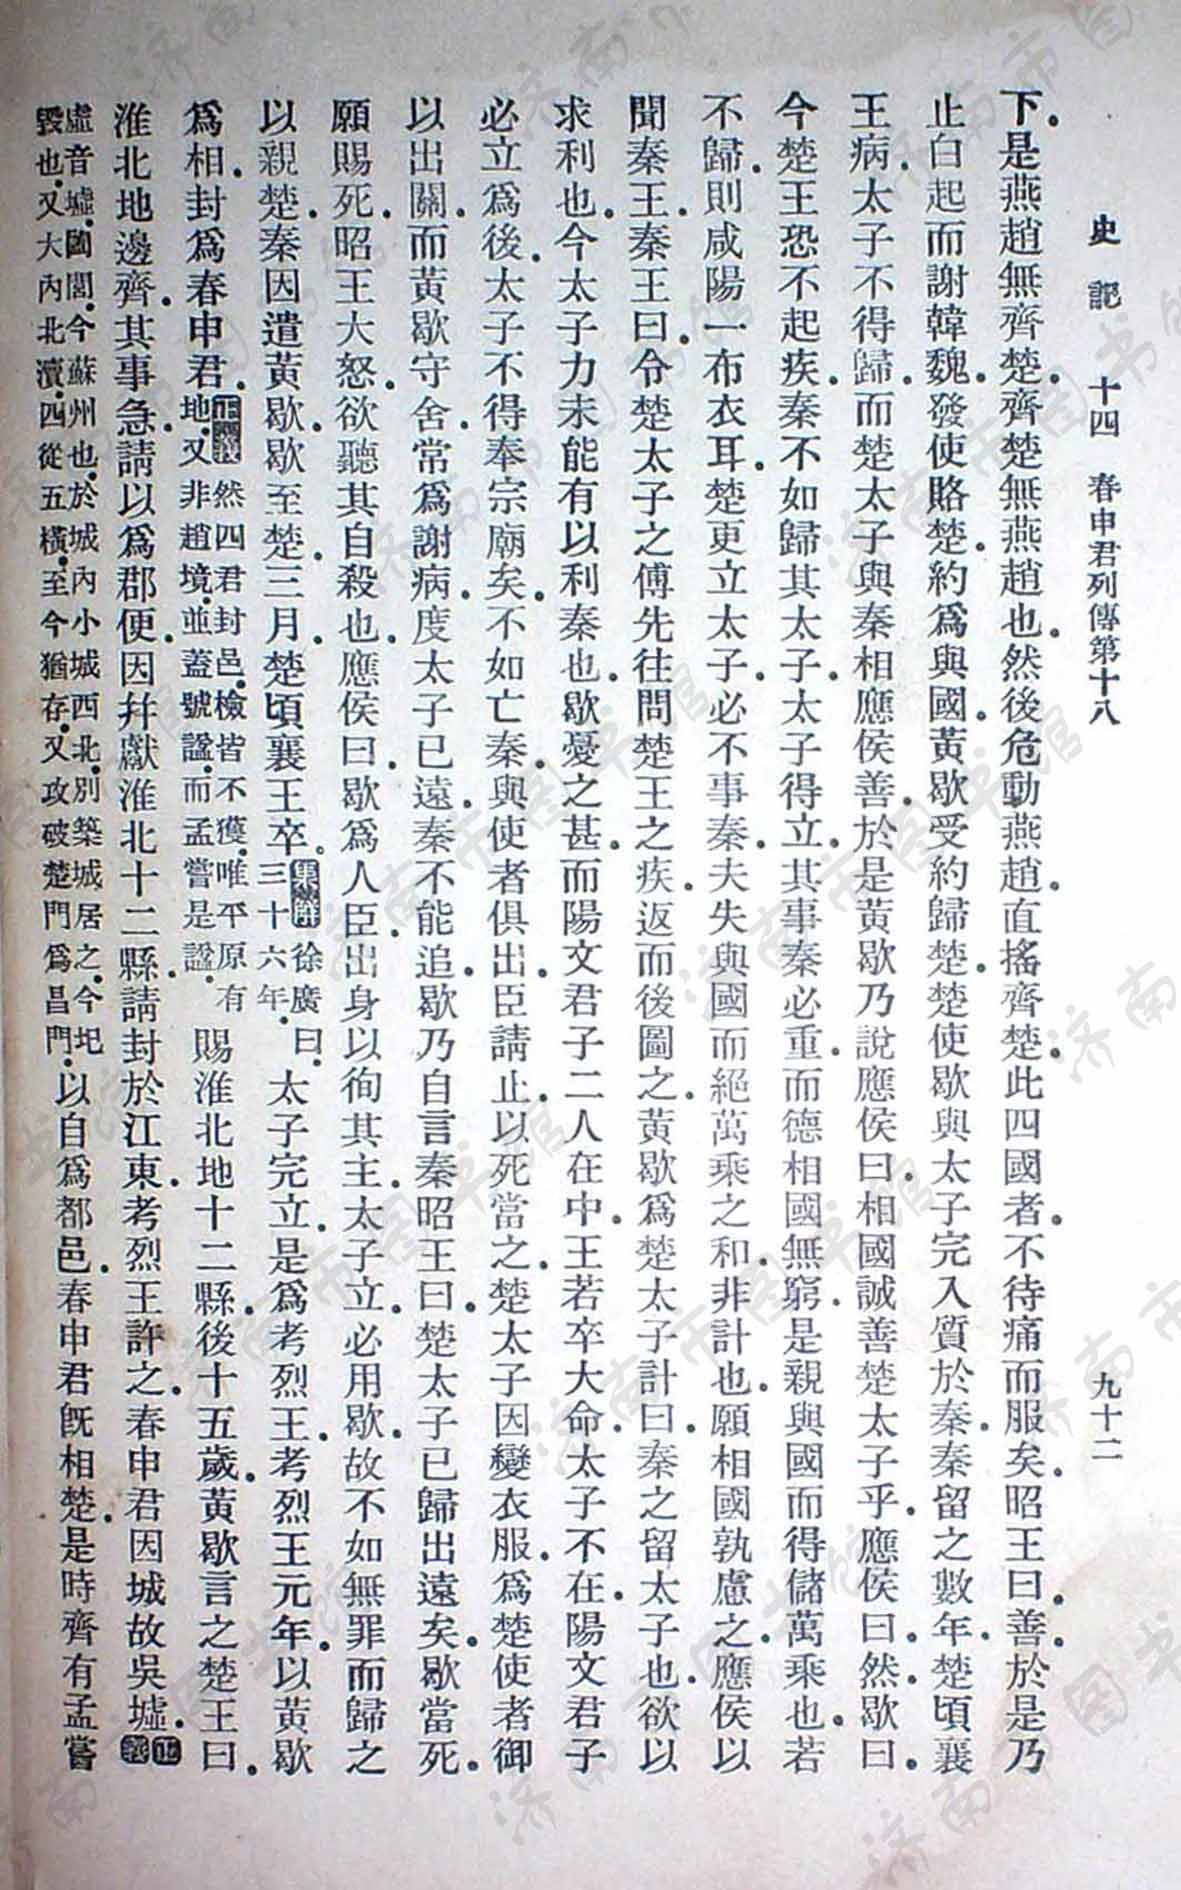 史記　十四　春申君列傳第十八　九十二
下。是燕趙無齊楚。齊楚無燕趙也。然後危動燕趙。直搖齊楚。此四國者。不待痛而服矣。昭王曰。善。於是乃
止白起而謝韓魏。發使賂楚。約爲與國。黃歇受約歸楚。楚使歇與太子完入質於秦。秦留之數年。楚頃襄
王病。太子不得歸。而楚太子與秦相應侯善。於是黃歇乃說應侯曰。相國誠善楚太子乎。應侯曰。然。歇曰。
今楚王恐不起疾。秦不如歸其太子。太子得立。其事秦必重。而德相國無窮。是親與國而得儲萬乘也。若
不歸。則咸陽一布衣耳。楚更立太子。必不事秦。夫失與國而絕萬乘之和。非計也。願相國孰慮之。應侯以
聞秦王。秦王曰。令楚太子之傅先往問楚王之疾。返而後圖之。黃歇爲楚太子計曰。秦之留太子也。欲以
求利也。今太子力未能有以利秦也。歇憂之甚。而陽文君子二人在中。王若卒大命。太子不在。陽文君子
必立爲後。太子不得奉宗廟矣。不如亡秦。與使者俱出。臣請止。以死當之。楚太子因變衣服。爲楚使者御
以出關。而黃歇守舍。常爲謝病。度太子已遠。秦不能追。歇乃自言秦昭王曰。楚太子已歸。出遠矣。歇當死。
願賜死。昭王大怒。欲聽其自殺也。應侯曰。歇爲人臣。出身以徇其主。太子立。必用歇。故不如無罪而歸之
以親楚。秦因遣黃歇。歇至楚三月。楚頃襄王卒。集解徐廣曰。三十六年。太子完立。是爲考烈王。考烈王元年。以黃歇
爲相。封爲春申君。正義然四君封邑。檢皆不獲。唯平原有地。又非趙境。並蓋號諡。而孟嘗是諡。賜淮北地十二縣。後十五歲。黃歇言之楚王曰。
淮北地邊齊。其事急。請以爲郡便。因幷獻淮北十二縣。請封於江東。考烈王許之。春申君因城故吳墟。正義
虛音墟。國閶。今蘇州也。於城內小城西北。別築城居之。今圮毀也。又大內北瀆。四從五橫。至今猶存。又攻破楚門爲昌門。以自爲都邑。春申君旣相楚。是時齊有孟嘗
济南市图书馆